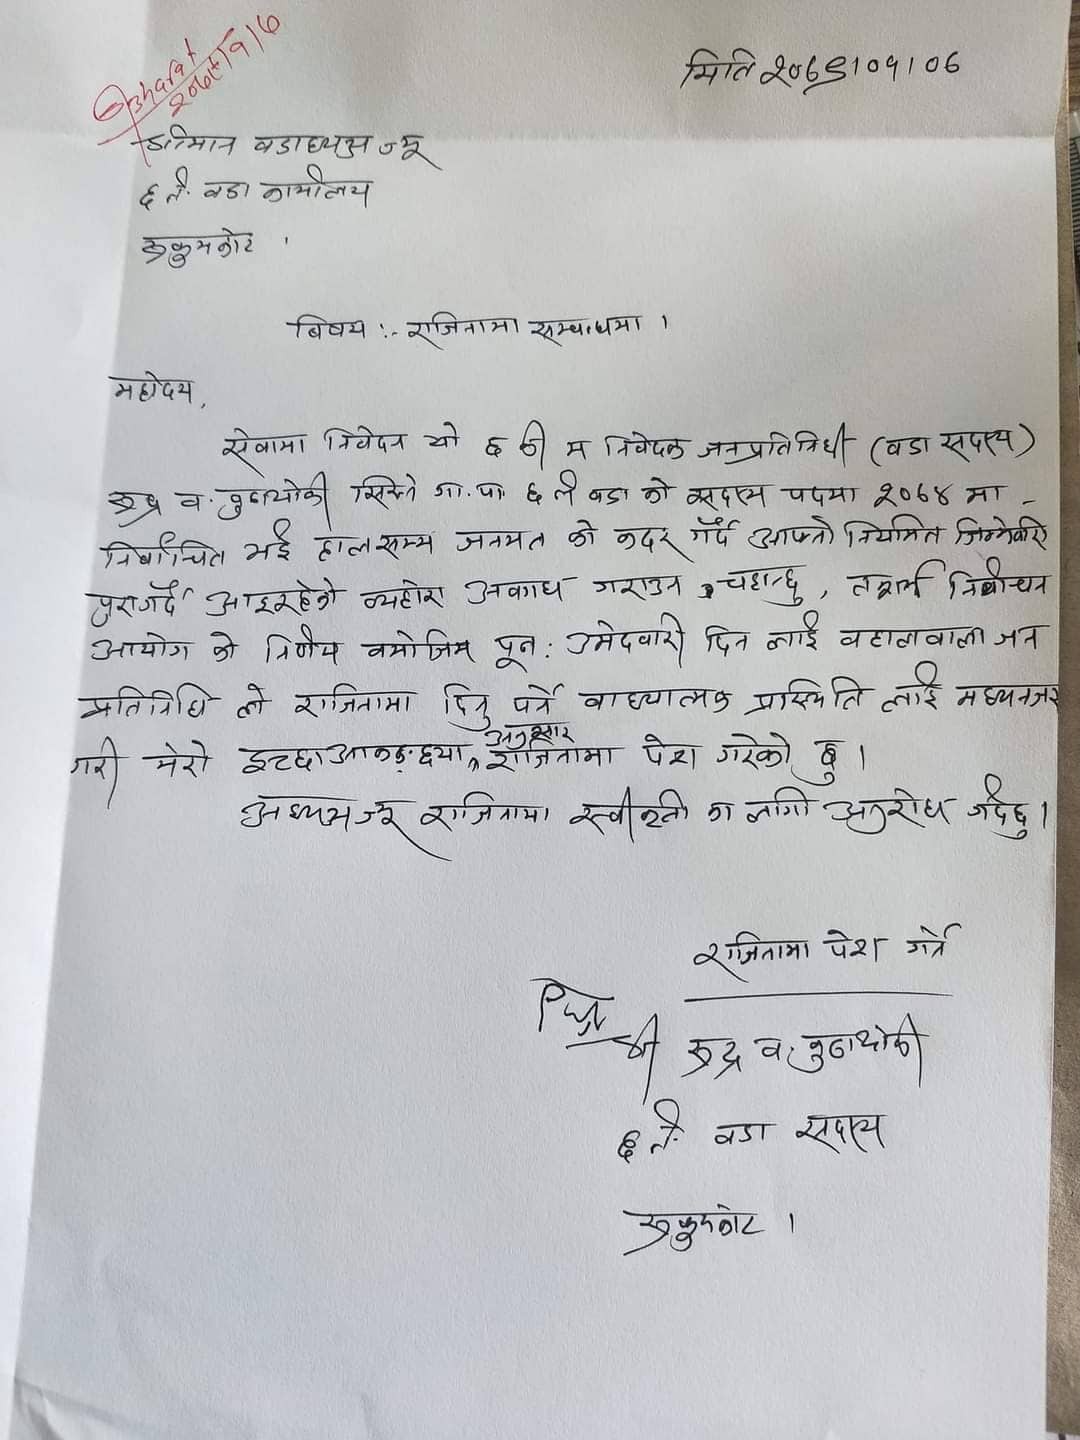 मिति २०७९।०१।०७
Bharat
२०७९।१।७
श्रीमान वडाध्यक्ष ज्यू
६ नं. वडा कार्यालय
रूकुमकोट ।
बिषय :- राजिनामा सम्बन्धमा ।
महोदय,
सेवामा निवेदन यो छ की म निवेदक जनप्रतिनिधी (वडा सदस्य)
रूद्र ब. बुढाथोकी सिस्ने गा.पा. ६ नं वडा को सदस्य पदमा २०७४ मा
निर्वाचित भई हालसम्म जनमत को कदर गर्दै आफ्नो नियमित जिम्मेवारी
पुरा गर्दै आइरहेको व्यहोरा अवगत गराउन चहान्छु, तसर्थ निर्वाचन
आयोग को निर्णय बमोजिम पून: उमेदवारी दिन लाई बहालवाला जन
प्रतिनिधि ले राजिनामा दिनु पर्ने बाध्यात्मक प्रस्थिति लाई मध्यनजर
गरी मेरो इच्छा आकाङ्छ्या अनुसार राजिनामा पेश गरेको छु ।
अध्यक्ष ज्यू राजिनामा स्वीकृती का लागी अनुरोध गर्दछु ।
राजिनामा पेश गर्ने
श्री रूद्र ब. बुढाथोकी
६ नं. वडा सदस्य
रूकुमकोट ।